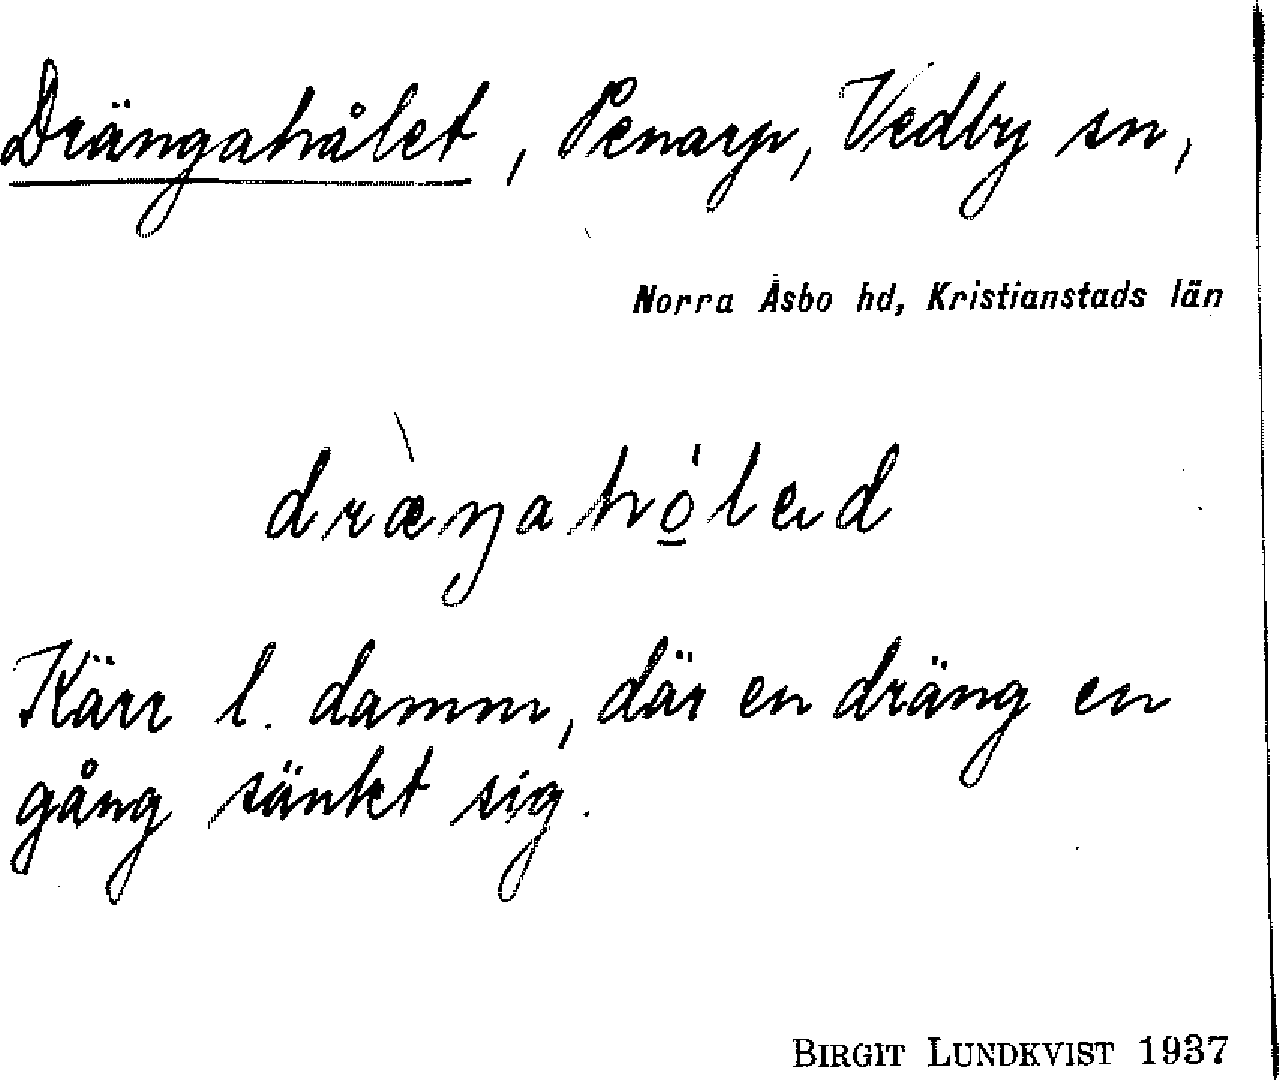 Drängahålet, Penarp, Vedby sn,
Norra Åsbo hd, Kristianstads län
dræ̀ŋahó̱lad
Kärr l. damm, där en dräng en
gång sänkt sig.
BIRGIT LUNDKVIST 1937